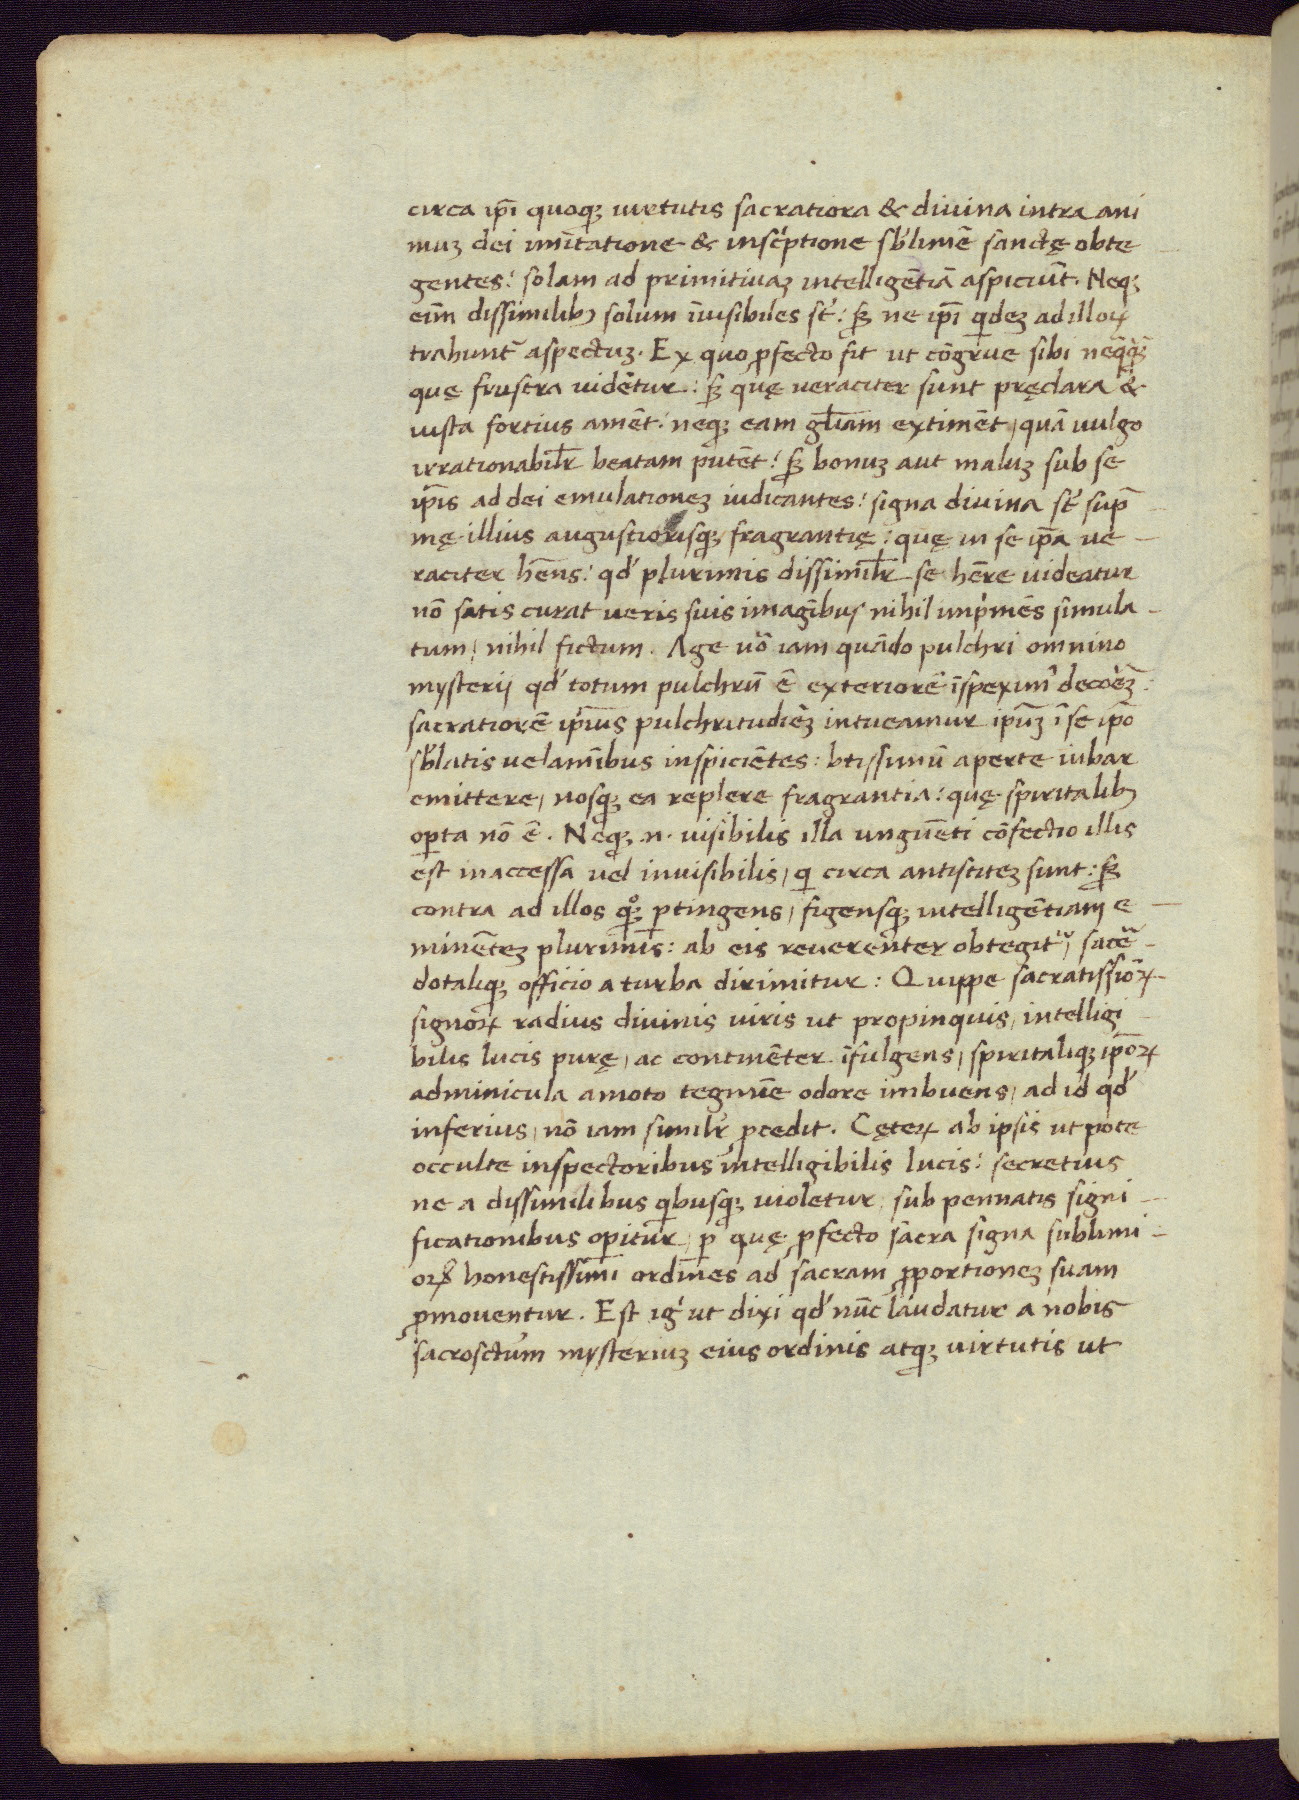 circa ip̅i quoqꝫ uirtutis sacratiora & diuina intra ani
muꝫ dei imitatione & inscᵢptione sb'limē sanctę obte
gentes: solam ad primitiuaꝫ intelligētiā aspiciūt. Neqꝫ
eim̅ dissimilibꝫ solum īuisibiles st': sꝫ ne ip̅i qdeꝫ ad illoꝝ
trahunt̅ aspectuꝫ. Ex quo ꝓfecto fit ut cōgrue sibi neq̅q̅ꝫ
quę frustra uidētur: sꝫ quę ueraciter sunt pręclara &
iusta fortius amēt: neqꝫ eam gl̅iam extimēt, quā uulgo
irrationabilr̅ beatam putēt: sꝫ bonuꝫ aut maluꝫ sub se
ip̅is ad dei emulationeꝫ iudicantes: signa diuina st' sup̅
mę illius augustiorisqꝫ fragrantię: quę in se ip̅a ue
raciter hn̅s: qd' plurimis dissimilr̅ se hēre uideatur
nō satis curat ueris suis imagībus nihil imp'mēs simula
tum, nihil fictum. Age uō iam quādo pulchri omnino
mysterij qd' totum pulchrū ē exteriorē īspexim' decoēꝫ:
sacratiorē ip̅ius pulchritudiēꝫ intueamur ip̅uꝫ ī se ip̅o
sb'latis uelamībus inspiciētes: btissimū aperte iubar
emittere, nosqꝫ ea replere fragrantia: quę spiritalibꝫ
oꝑta nō ē. Neqꝫ .n. uisibilis illa unguēti cōfectio illis
est inaccessa uel inuisibilis, qi circa antistiteꝫ sunt: sꝫ
contra ad illos qͦꝫ ꝑtingens, figensqꝫ intelligētiam e
minēteꝫ plurimis: ab eis reuerenter obtegitr, sacē
dotaliqꝫ officio a turba dirimitur: Quippe sacratissioꝝ
signoꝝ radius diuinis uiris ut propinquis, intelligi
bilis lucis purę, ac continēter īfulgens, spiritaliqꝫ ip̅oꝝ
adminicula amoto tegmīe odore imbuens, ad id qd'
inferius, nō iam similr' ꝓcedit. Cęteꝝ ab ipsis ut pote
occulte inspectoribus intelligibilis lucis: secretius
ne a dissimilibus qbusqꝫ uioletur, sub pennatis signi
ficationibus oꝑitur, ꝑ quę ꝓfecto sacra signa sublimi
oꝝ honestissimi ordines ad sacram ꝓportioneꝫ suam
ꝓmouentur. Est ig' ut dixi qd' nūc laudatur a nobis
sacrosctum mysteriuꝫ eius ordinis atqꝫ uirtutis ut